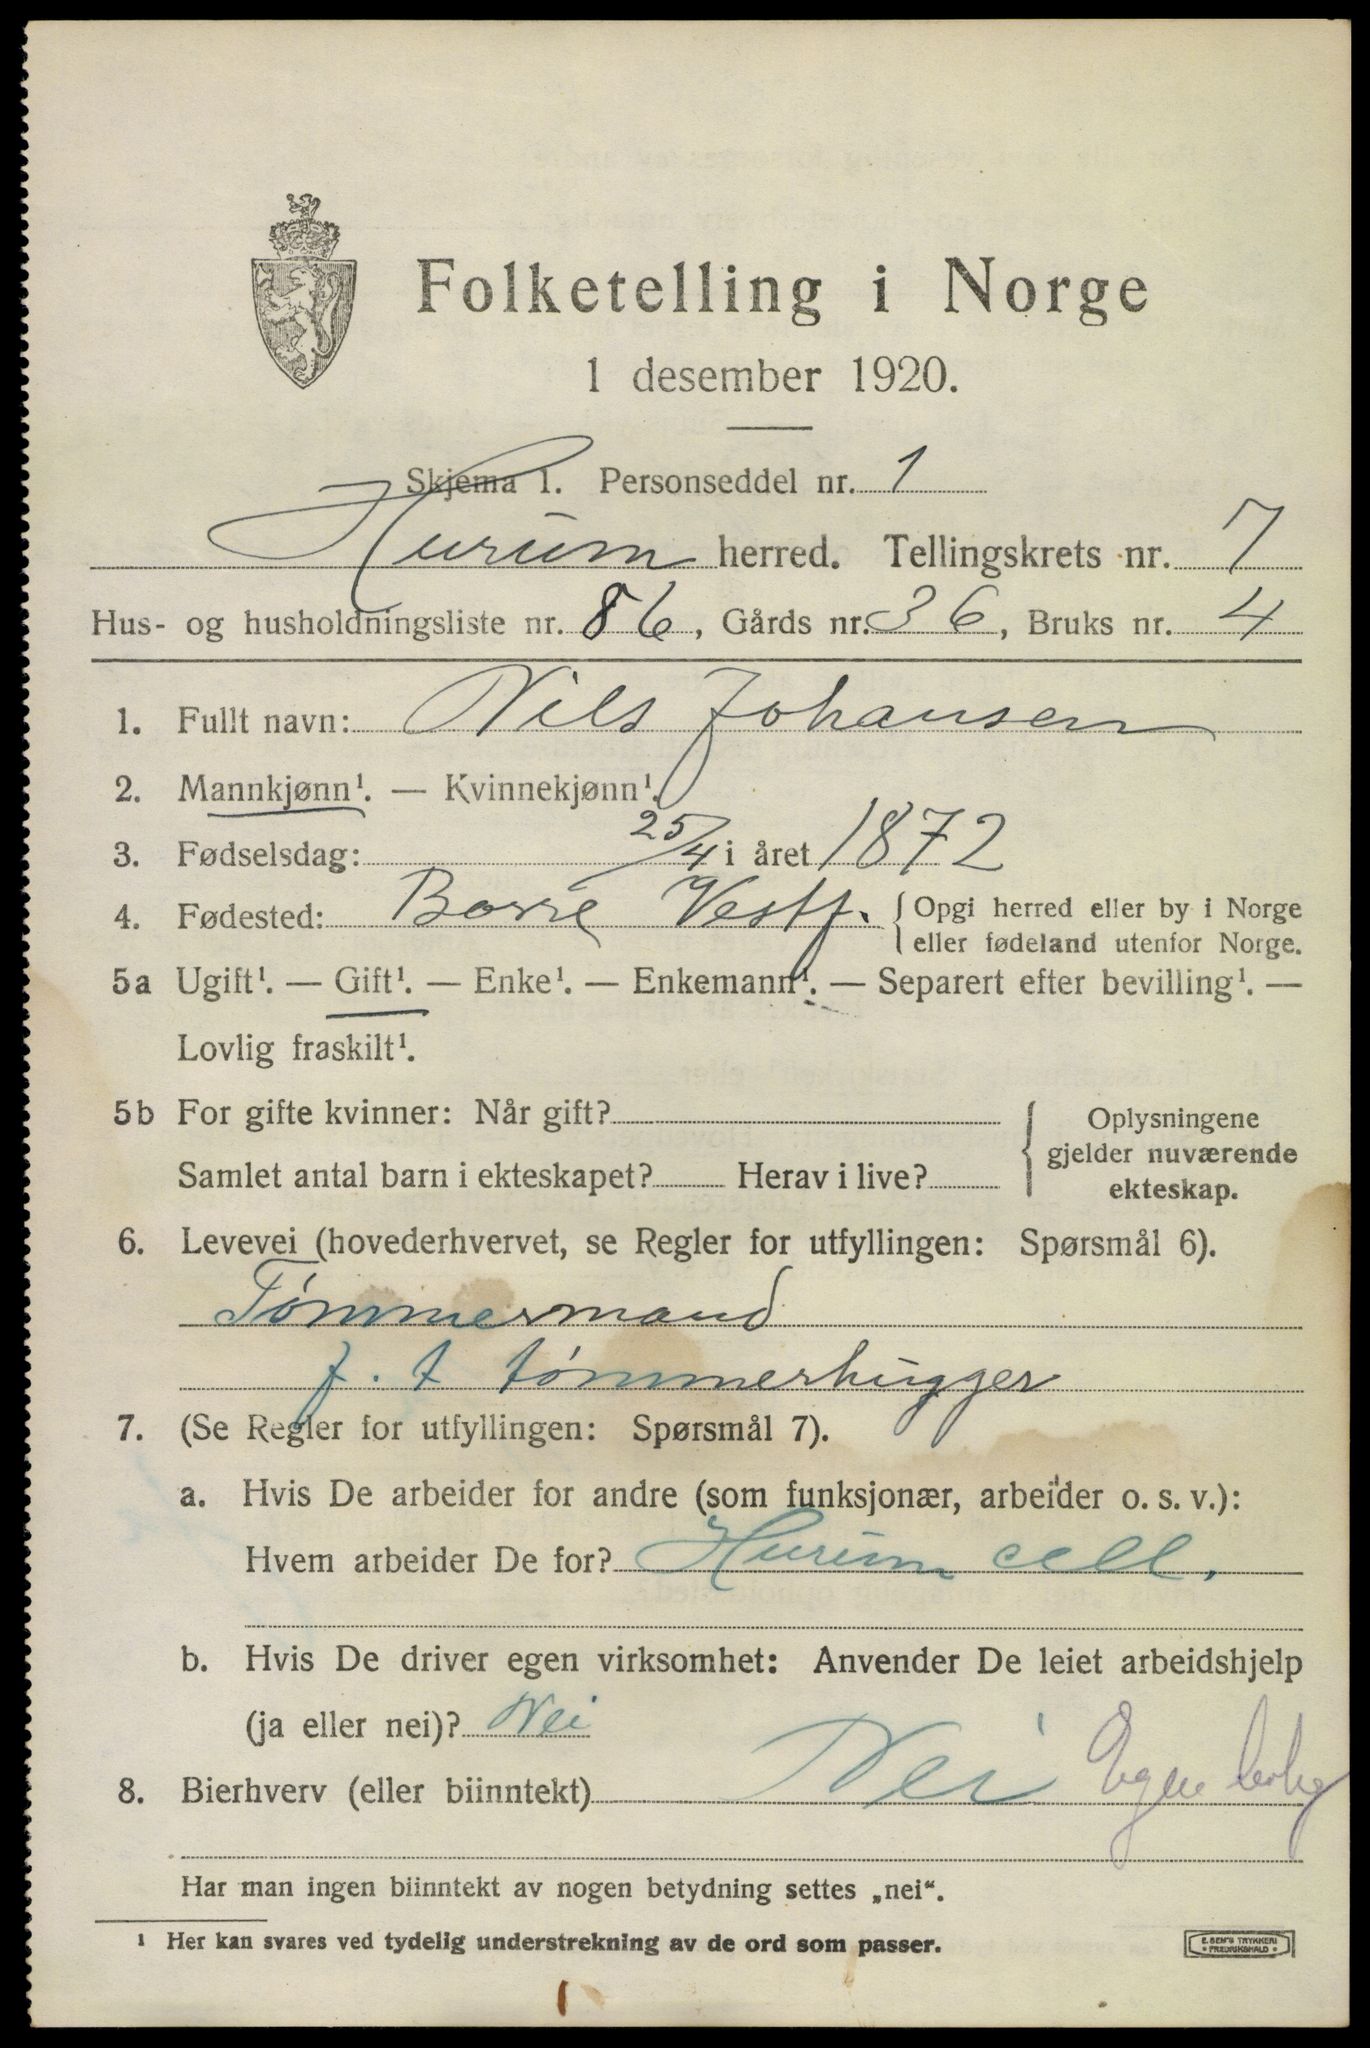 Folketelling i Norge
1 desember 1920.
Skjema 1. Personseddel nr. 1
Hurum herred. Tellingskrets nr. 7
Hus- og husholdningsliste nr. 86, Gårds nr. 36, Bruks nr. 4
1. Fullt navn: Nils Johansen
2. Mannkjønn¹. — Kvinnekjønn¹.
3. Fødselsdag: 25/4 i året 1872
4. Fødested: Borre Vestf. { Opgi herred eller by i Norge
eller fødeland utenfor Norge.
5a Ugift¹. — Gift¹. — Enke¹. — Enkemann¹. — Separert efter bevilling¹. —
Lovlig fraskilt¹.
5b For gifte kvinner: Når gift?
Samlet antal barn i ekteskapet? Herav i live?
{ Oplysningene
gjelder nuværende
ekteskap.
6. Levevei (hovederhvervet, se Regler for utfyllingen: Spørsmål 6).
Tømmermand
f. t tømmerhugger
7. (Se Regler for utfyllingen: Spørsmål 7).
a. Hvis De arbeider for andre (som funksjonær, arbeider o. s. v.):
Hvem arbeider De for? Hurum cell.
b. Hvis De driver egen virksomhet: Anvender De leiet arbeidshjelp
(ja eller nei)? Nei
8. Bierhverv (eller biinntekt) Nei Egen
Har man ingen biinntekt av nogen betydning settes „nei“.
¹ Her kan svares ved tydelig understrekning av de ord som passer.
E. SEM'S TRYKKERI
• FREDRIKSHALD •